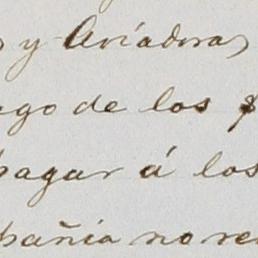 y Aviadoras
ago de los
pagar á los
pañia no